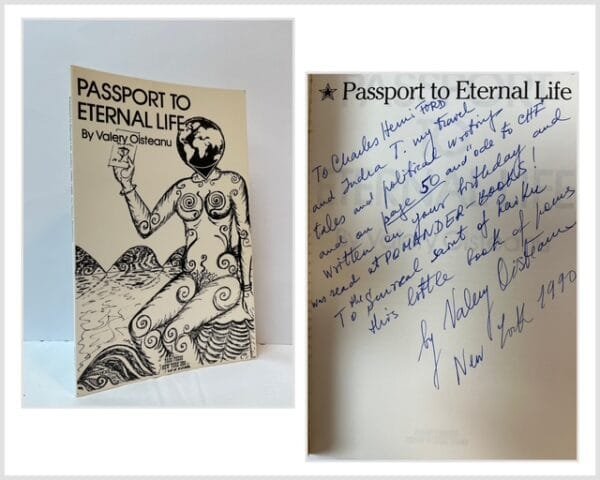 PASSPORT TO
ETERNAL LIFE
By Valery Oisteanu
Passport to Eternal Life
To Charles Henri FORD
and Indra T. my travel
tales and political writings
and on page 50 and "ode to CHF
written on your birthday and
was read at POMANDER-BOOKS!
To the surreal saint of haiku
this little book of poems
by Valery Oisteanu
New York 1990